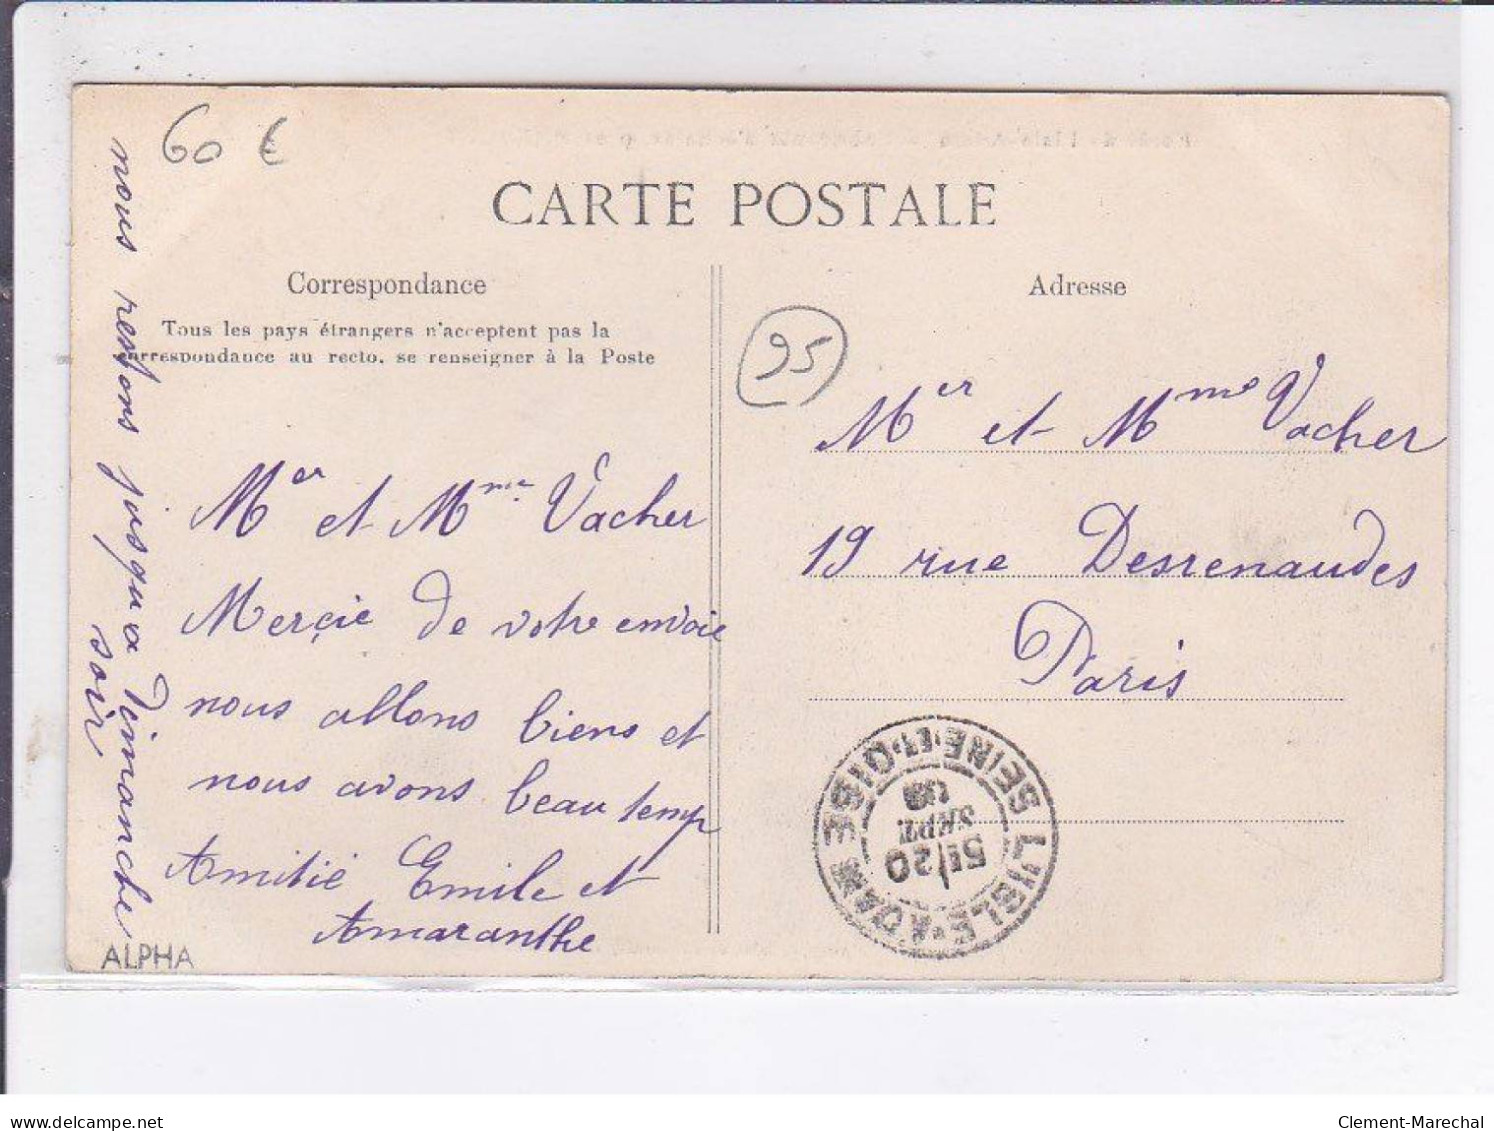 60 €
CARTE POSTALE
Correspondance
Tous les pays étrangers n'acceptent pas la
correspondance au recto. se renseigner à la Poste
Adresse
95
Mer et Mme Vacher
19 rue Desrenaudes
Paris
Mer et Mme Vacher
Merçie de votre envoie
nous allons biens et
nous avons beau temp
Amitié Emile et
Amaranthe
nous restons jusqu'a Dimanche
soir
L'ISLE-ADAM
SEINE-ET-OISE
5E/20
SEPT
ALPHA
delcampe.net
Clement-Marechal